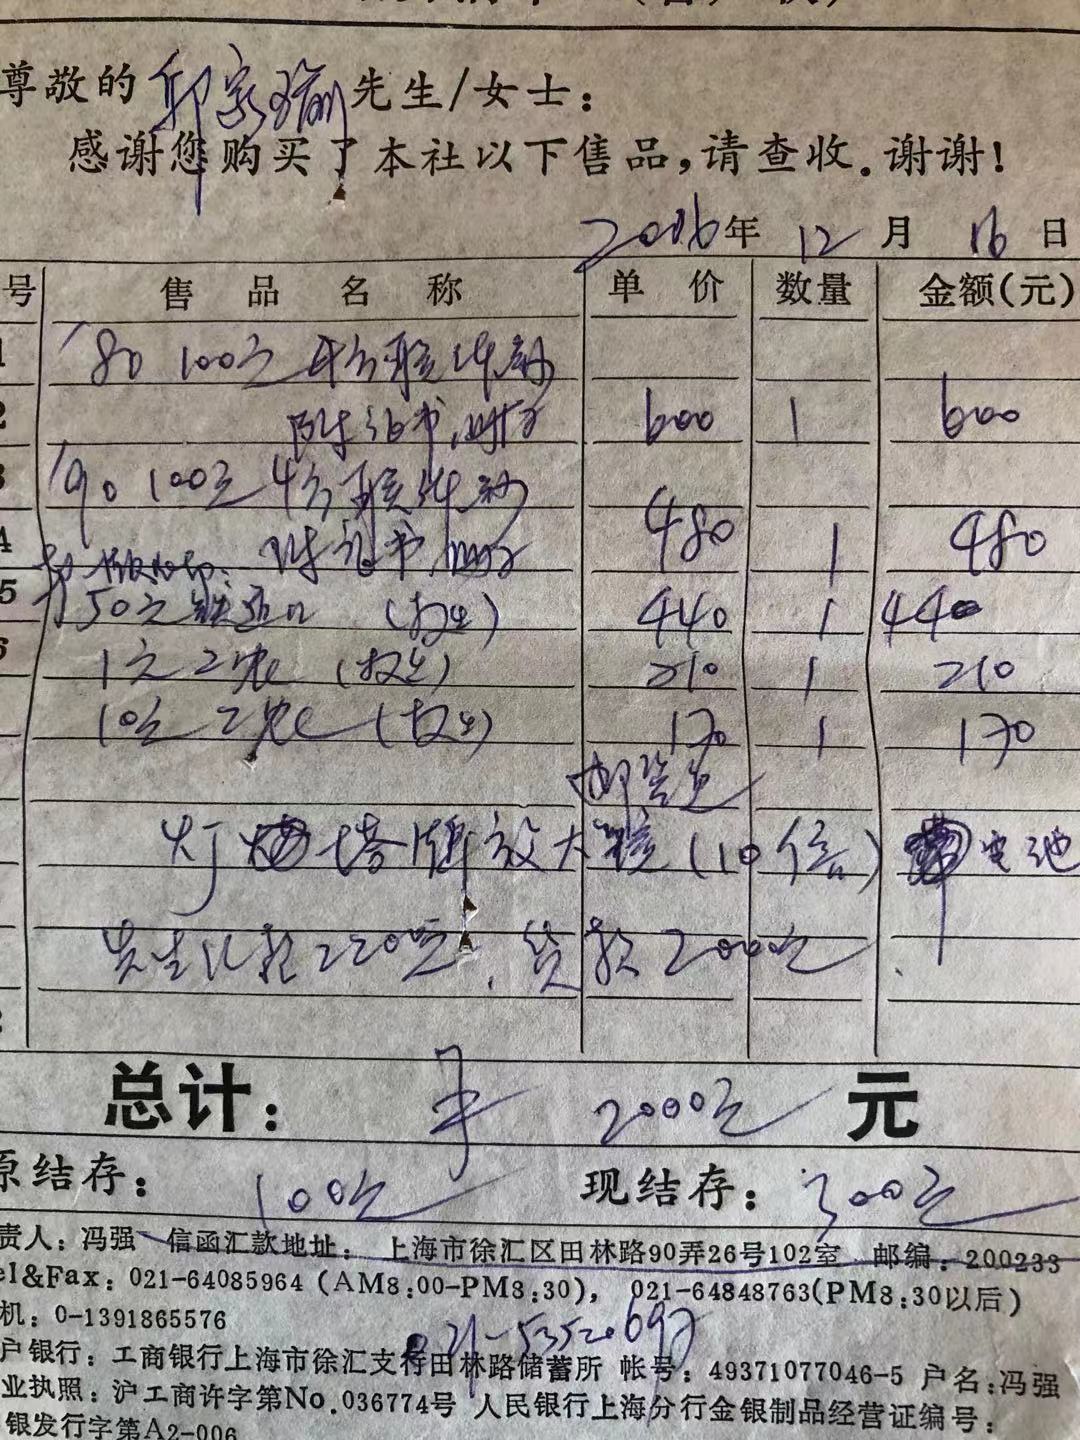 尊敬的郭家瑜先生/女士：
感谢您购买了本社以下售品，请查收．谢谢！
2006年 12 月 16 日
号 售 品 名 称 单 价 数量 金额(元)
1 '80 100元 4分联体钞
2 附证书、册子 600 1 600
3 '90 100元 4分联体钞
4 附证书、册子 480 1 480
5 50元 (投足) 440 1 440
6 1元 2 (投足) 210 1 210
10元 2 (投足) 170 1 170
灯塔牌放大镜(10倍) 电池
先生汇款2200元、货款2000元
总计： 2000元 元
原结存： 100元 现结存： 300元
责人：冯强 信函汇款地址： 上海市徐汇区田林路90弄26号102室 邮编：200233
el&Fax：021-64085964 (AM8:00-PM8:30)， 021-64848763(PM8:30以后)
机：0-1391865576
021-53520697
户银行：工商银行上海市徐汇支行田林路储蓄所 帐号：49371077046-5 户名：冯强
业执照：沪工商许字第No.036774号 人民银行上海分行金银制品经营证编号：
银发行字第A2-006